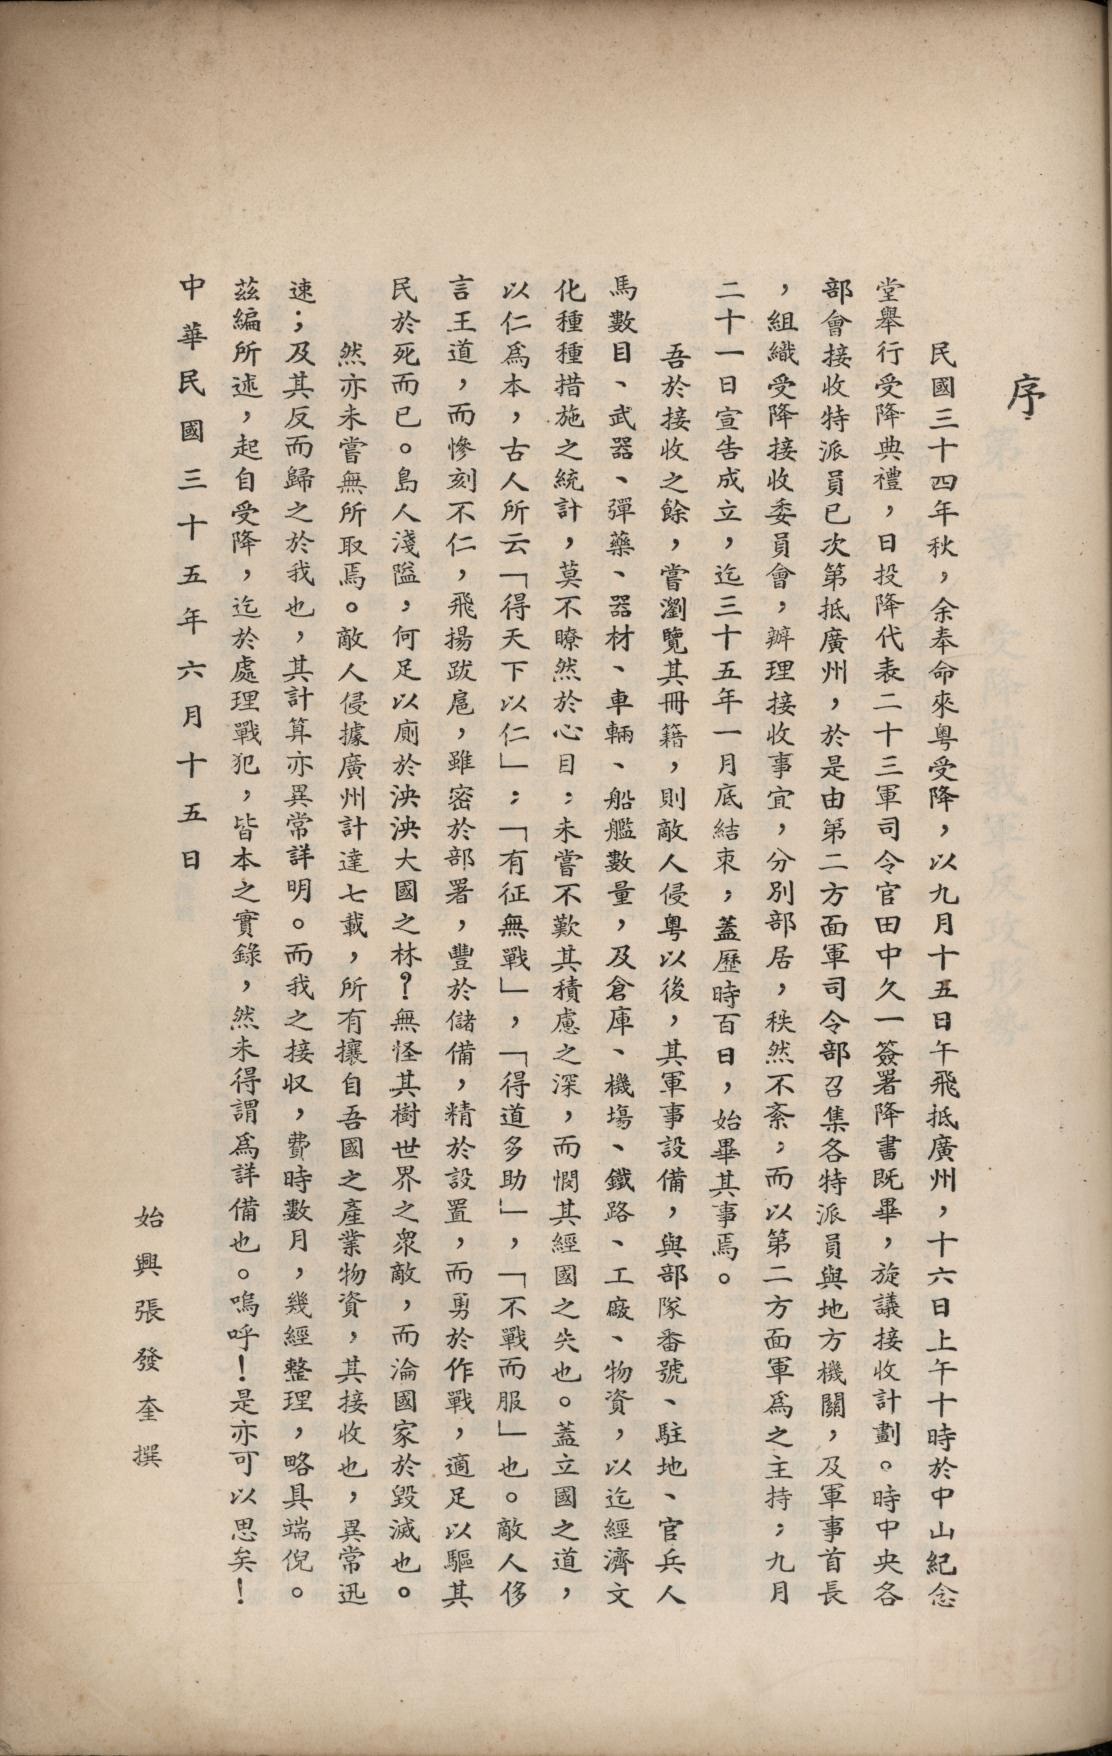 序
民國三十四年秋，余奉命來粤受降，以九月十五日午飛抵廣州，十六日上午十時於中山紀念
堂舉行受降典禮，日投降代表二十三軍司令官田中久一簽署降書既畢，旋議接收計劃。時中央各
部會接收特派員已次第抵廣州，於是由第二方面軍司令部召集各特派員與地方機關，及軍事首長
，組織受降接收委員會，辦理接收事宜，分別部居，秩然不紊，而以第二方面軍爲之主持；九月
二十一日宣告成立，迄三十五年一月底結束，蓋歷時百日，始畢其事焉。
吾於接收之餘，嘗瀏覽其冊籍，則敵人侵粤以後，其軍事設備，與部隊番號、駐地、官兵人
馬數目、武器、彈藥、器材、車輛、船艦數量，及倉庫、機塲、鐵路、工廠、物資，以迄經濟文
化種種措施之統計，莫不瞭然於心目；未嘗不歎其積慮之深，而憫其經國之失也。蓋立國之道，
以仁爲本，古人所云「得天下以仁」；「有征無戰」，「得道多助」，「不戰而服」也。敵人侈
言王道，而慘刻不仁，飛揚跋扈，雖密於部署，豐於儲備，精於設置，而勇於作戰，適足以驅其
民於死而已。島人淺隘，何足以廁於泱泱大國之林？無怪其樹世界之衆敵，而淪國家於毀滅也。
然亦未嘗無所取焉。敵人侵據廣州計達七載，所有攘自吾國之產業物資，其接收也，異常迅
速；及其反而歸之於我也，其計算亦異常詳明。而我之接収，費時數月，幾經整理，略具端倪。
茲編所述，起自受降，迄於處理戰犯，皆本之實錄，然未得謂爲詳備也。嗚呼！是亦可以思矣！
中華民國三十五年六月十五日
始興張發奎撰